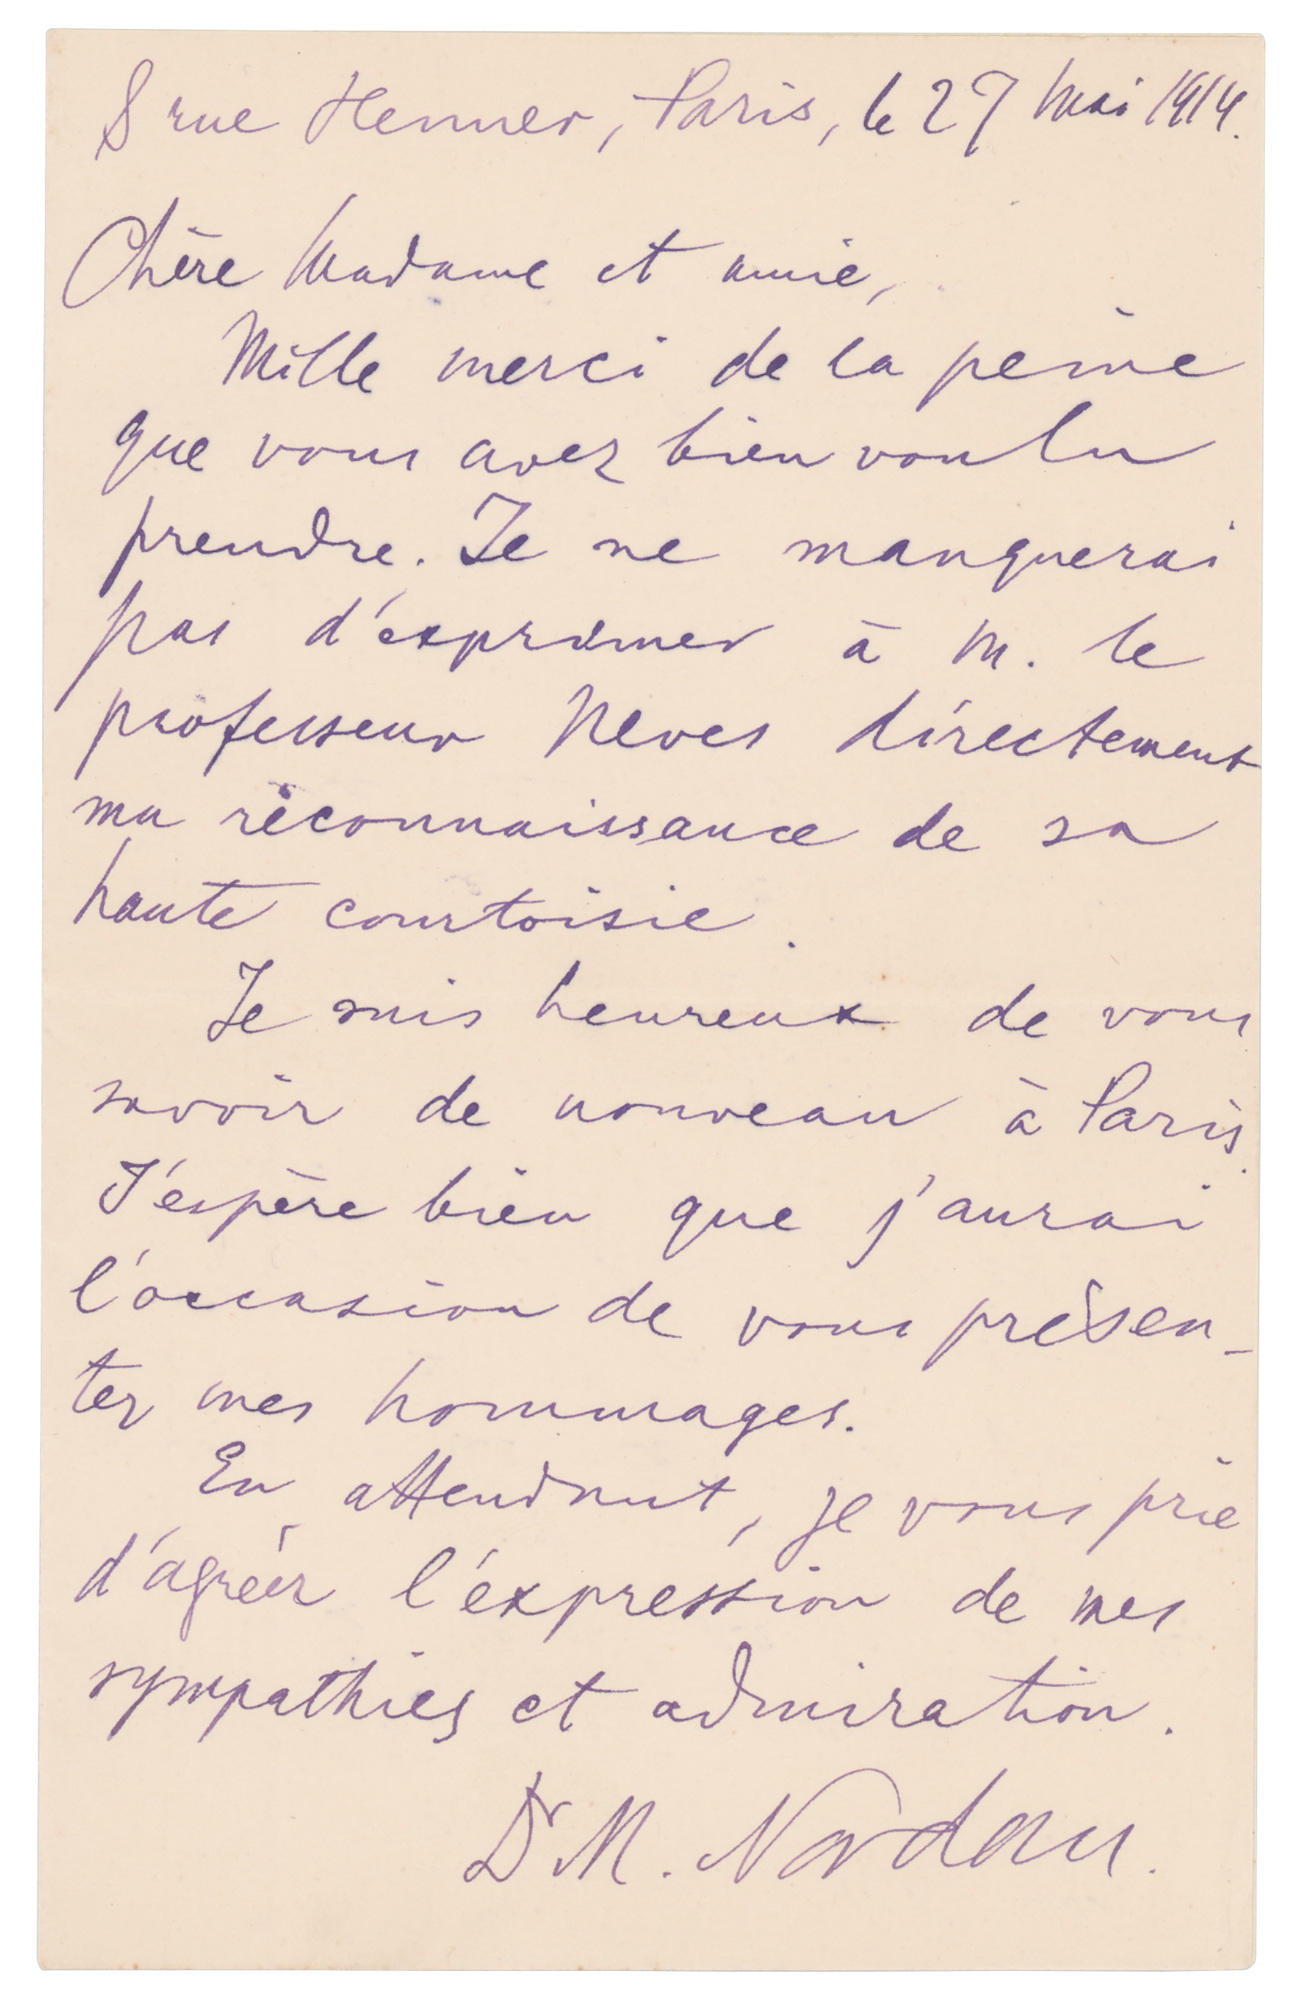 8 rue Henner, Paris, le 27 Mai 1914.
Chère Madame et amie,
Mille merci de la peine
que vous avez bien voulu
prendre. Je ne manquerai
pas d'exprimer à M. le
professeur Neves directement
ma réconnaissance de sa
haute courtoisie.
Je suis heureux de vous
savoir de nouveau à Paris.
J'espère bien que j'aurai
l'occasion de vous présen-
ter mes hommages.
En attendant, je vous prie
d'agréer l'éxpression de mes
sympathies et admiration.
Dr M. Nordau.